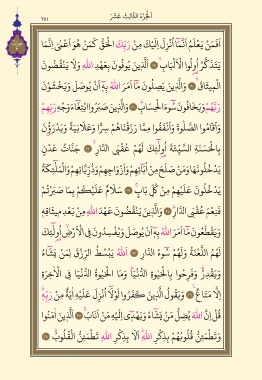 اَلْجُزْءُ الثَّالِثَ عَشَرَ
٢٥١
اَفَمَنْ يَعْلَمُ اَنَّمَٓا اُنْزِلَ اِلَيْكَ مِنْ رَبِّكَ الْحَقُّ كَمَنْ هُوَ اَعْمٰىۜ اِنَّمَا
يَتَذَكَّرُ اُو۬لُوا الْاَلْبَابِۙ ﴿١٩﴾ اَلَّذ۪ينَ يُوفُونَ بِعَهْدِ اللّٰهِ وَلَا يَنْقُضُونَ
الْم۪يثَاقَۙ ﴿٢٠﴾ وَالَّذ۪ينَ يَصِلُونَ مَٓا اَمَرَ اللّٰهُ بِه۪ٓ اَنْ يُوصَلَ وَيَخْشَوْنَ
رَبَّهُمْ وَيَخَافُونَ سُٓوءَ الْحِسَابِۜ ﴿٢١﴾ وَالَّذ۪ينَ صَبَرُوا ابْتِغَٓاءَ وَجْهِ رَبِّهِمْ
وَاَقَامُوا الصَّلٰوةَ وَاَنْفَقُوا مِمَّا رَزَقْنَاهُمْ سِرًّا وَعَلَانِيَةً وَيَدْرَؤُ۫نَ
بِالْحَسَنَةِ السَّيِّئَةَ اُو۬لٰٓئِكَ لَهُمْ عُقْبَى الدَّارِۙ ﴿٢٢﴾ جَنَّاتُ عَدْنٍ
يَدْخُلُونَهَا وَمَنْ صَلَحَ مِنْ اٰبَٓائِهِمْ وَاَزْوَاجِهِمْ وَذُرِّيَّاتِهِمْ وَالْمَلٰٓئِكَةُ
يَدْخُلُونَ عَلَيْهِمْ مِنْ كُلِّ بَابٍۚ ﴿٢٣﴾ سَلَامٌ عَلَيْكُمْ بِمَا صَبَرْتُمْ
فَنِعْمَ عُقْبَى الدَّارِۜ ﴿٢٤﴾ وَالَّذ۪ينَ يَنْقُضُونَ عَهْدَ اللّٰهِ مِنْ بَعْدِ م۪يثَاقِه۪
وَيَقْطَعُونَ مَٓا اَمَرَ اللّٰهُ بِه۪ٓ اَنْ يُوصَلَ وَيُفْسِدُونَ فِي الْاَرْضِۙ اُو۬لٰٓئِكَ
لَهُمُ اللَّعْنَةُ وَلَهُمْ سُٓوءُ الدَّارِ ﴿٢٥﴾ اَللّٰهُ يَبْسُطُ الرِّزْقَ لِمَنْ يَشَٓاءُ
وَيَقْدِرُۜ وَفَرِحُوا بِالْحَيٰوةِ الدُّنْيَاۜ وَمَا الْحَيٰوةُ الدُّنْيَا فِي الْاٰخِرَةِ
اِلَّا مَتَاعٌ۟ ﴿٢٦﴾ وَيَقُولُ الَّذ۪ينَ كَفَرُوا لَوْلَٓا اُنْزِلَ عَلَيْهِ اٰيَةٌ مِنْ رَبِّه۪ۜ
قُلْ اِنَّ اللّٰهَ يُضِلُّ مَنْ يَشَٓاءُ وَيَهْد۪ٓي اِلَيْهِ مَنْ اَنَابَۚ ﴿٢٧﴾ اَلَّذ۪ينَ اٰمَنُوا
وَتَطْمَئِنُّ قُلُوبُهُمْ بِذِكْرِ اللّٰهِۜ اَلَا بِذِكْرِ اللّٰهِ تَطْمَئِنُّ الْقُلُوبُۜ ﴿٢٨﴾